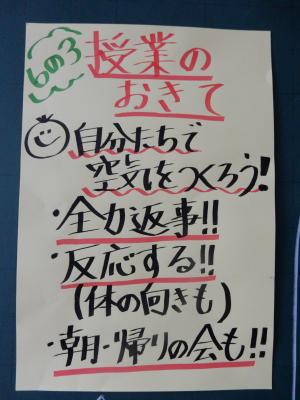 6の3
授業の
おきて
自分たちで
空気をつくろう!
・全力返事!!
・反応する!!
(体の向きも)
・朝・帰りの会も!!